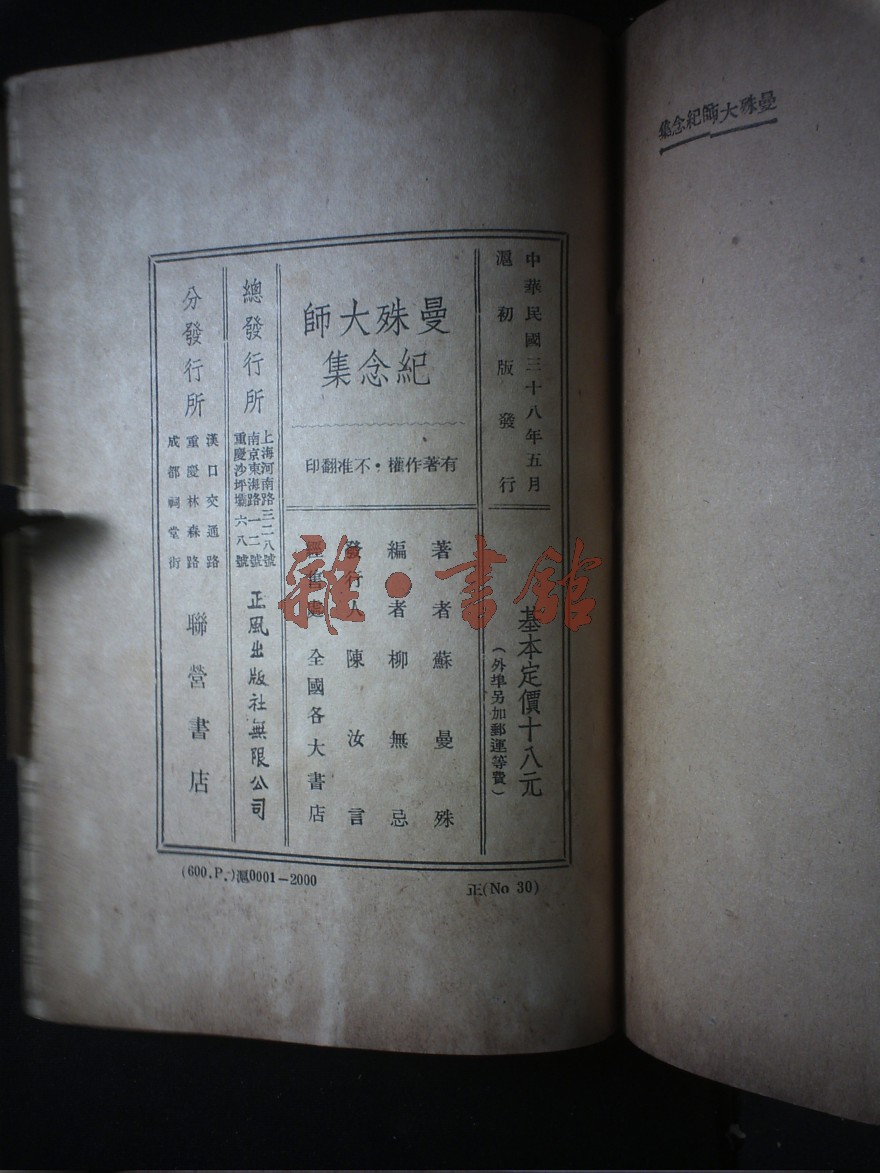 曼殊大師紀念集
中華民國三十八年五月
滬初版發行
基本定價十八元
(外埠另加郵運等費)
曼殊大師
紀念集
有著作權·不准翻印
著者蘇曼殊
編者柳無忌
發行人陳汝言
經售處全國各大書店
總發行所
上海河南路三二八號
南京東海路一二號
重慶沙坪壩六八號
正風出版社無限公司
分發行所
漢口交通路
重慶林森路
成都祠堂街
聯營書店
(600.P.)滬0001—2000
正(No 30)
雜·書館